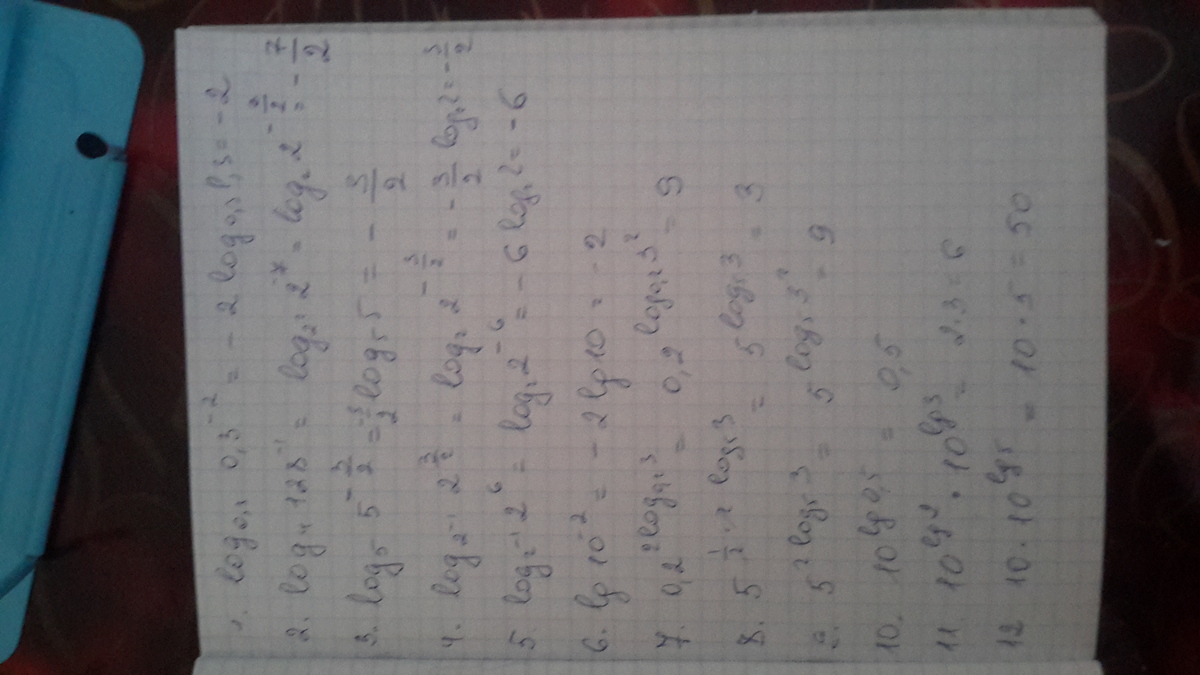 1. log₀,₃ 0,3⁻² = -2 log₀,₃ 0,3 = -2
2. log₄ 128⁻¹ = log₂² 2⁻⁷ = log₂ 2^(-7/2) = -7/2
3. log₅ 5^(-3/2) = -3/2 log₅ 5 = -3/2
4. log₂⁻¹ 2^(3/2) = log₂ 2^(-3/2) = -3/2 log₂ 2 = -3/2
5. log₂⁻¹ 2⁶ = log₂ 2⁻⁶ = -6 log₂ 2 = -6
6. lg 10⁻² = -2 lg 10 = -2
7. 0,2^(2 log₀,₂ 3) = 0,2^(log₀,₂ 3²) = 9
8. 5^(1/2 · 2 log₅ 3) = 5^(log₅ 3) = 3
9. 5^(2 log₅ 3) = 5^(log₅ 3²) = 9
10. 10^(lg 0,5) = 0,5
11 10^(lg 2) · 10^(lg 3) = 2·3 = 6
12 10 · 10^(lg 5) = 10 · 5 = 50